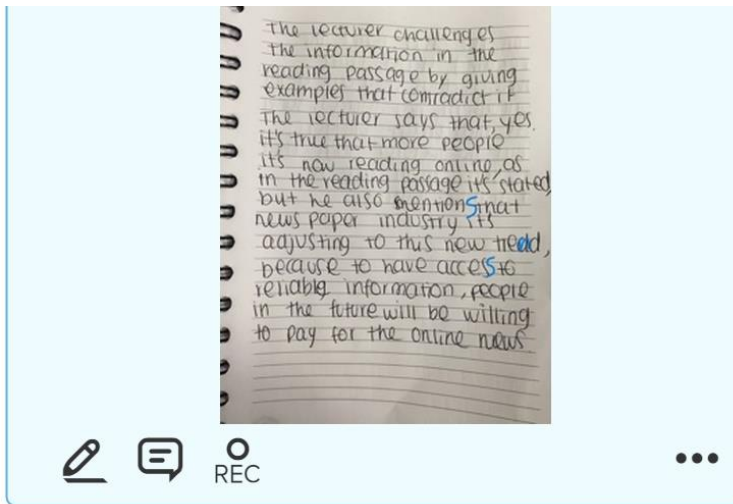 The lecturer challenges
the information in the
reading passage by giving
examples that contradict it
The lecturer says that, yes.
it's true that more people
it's now reading online, as
in the reading passage it's stated,
but he also mentions that
news paper industry it's
adjusting to this new
because to have access to
reliable information, people
in the future will be willing
to pay for the online news
REC